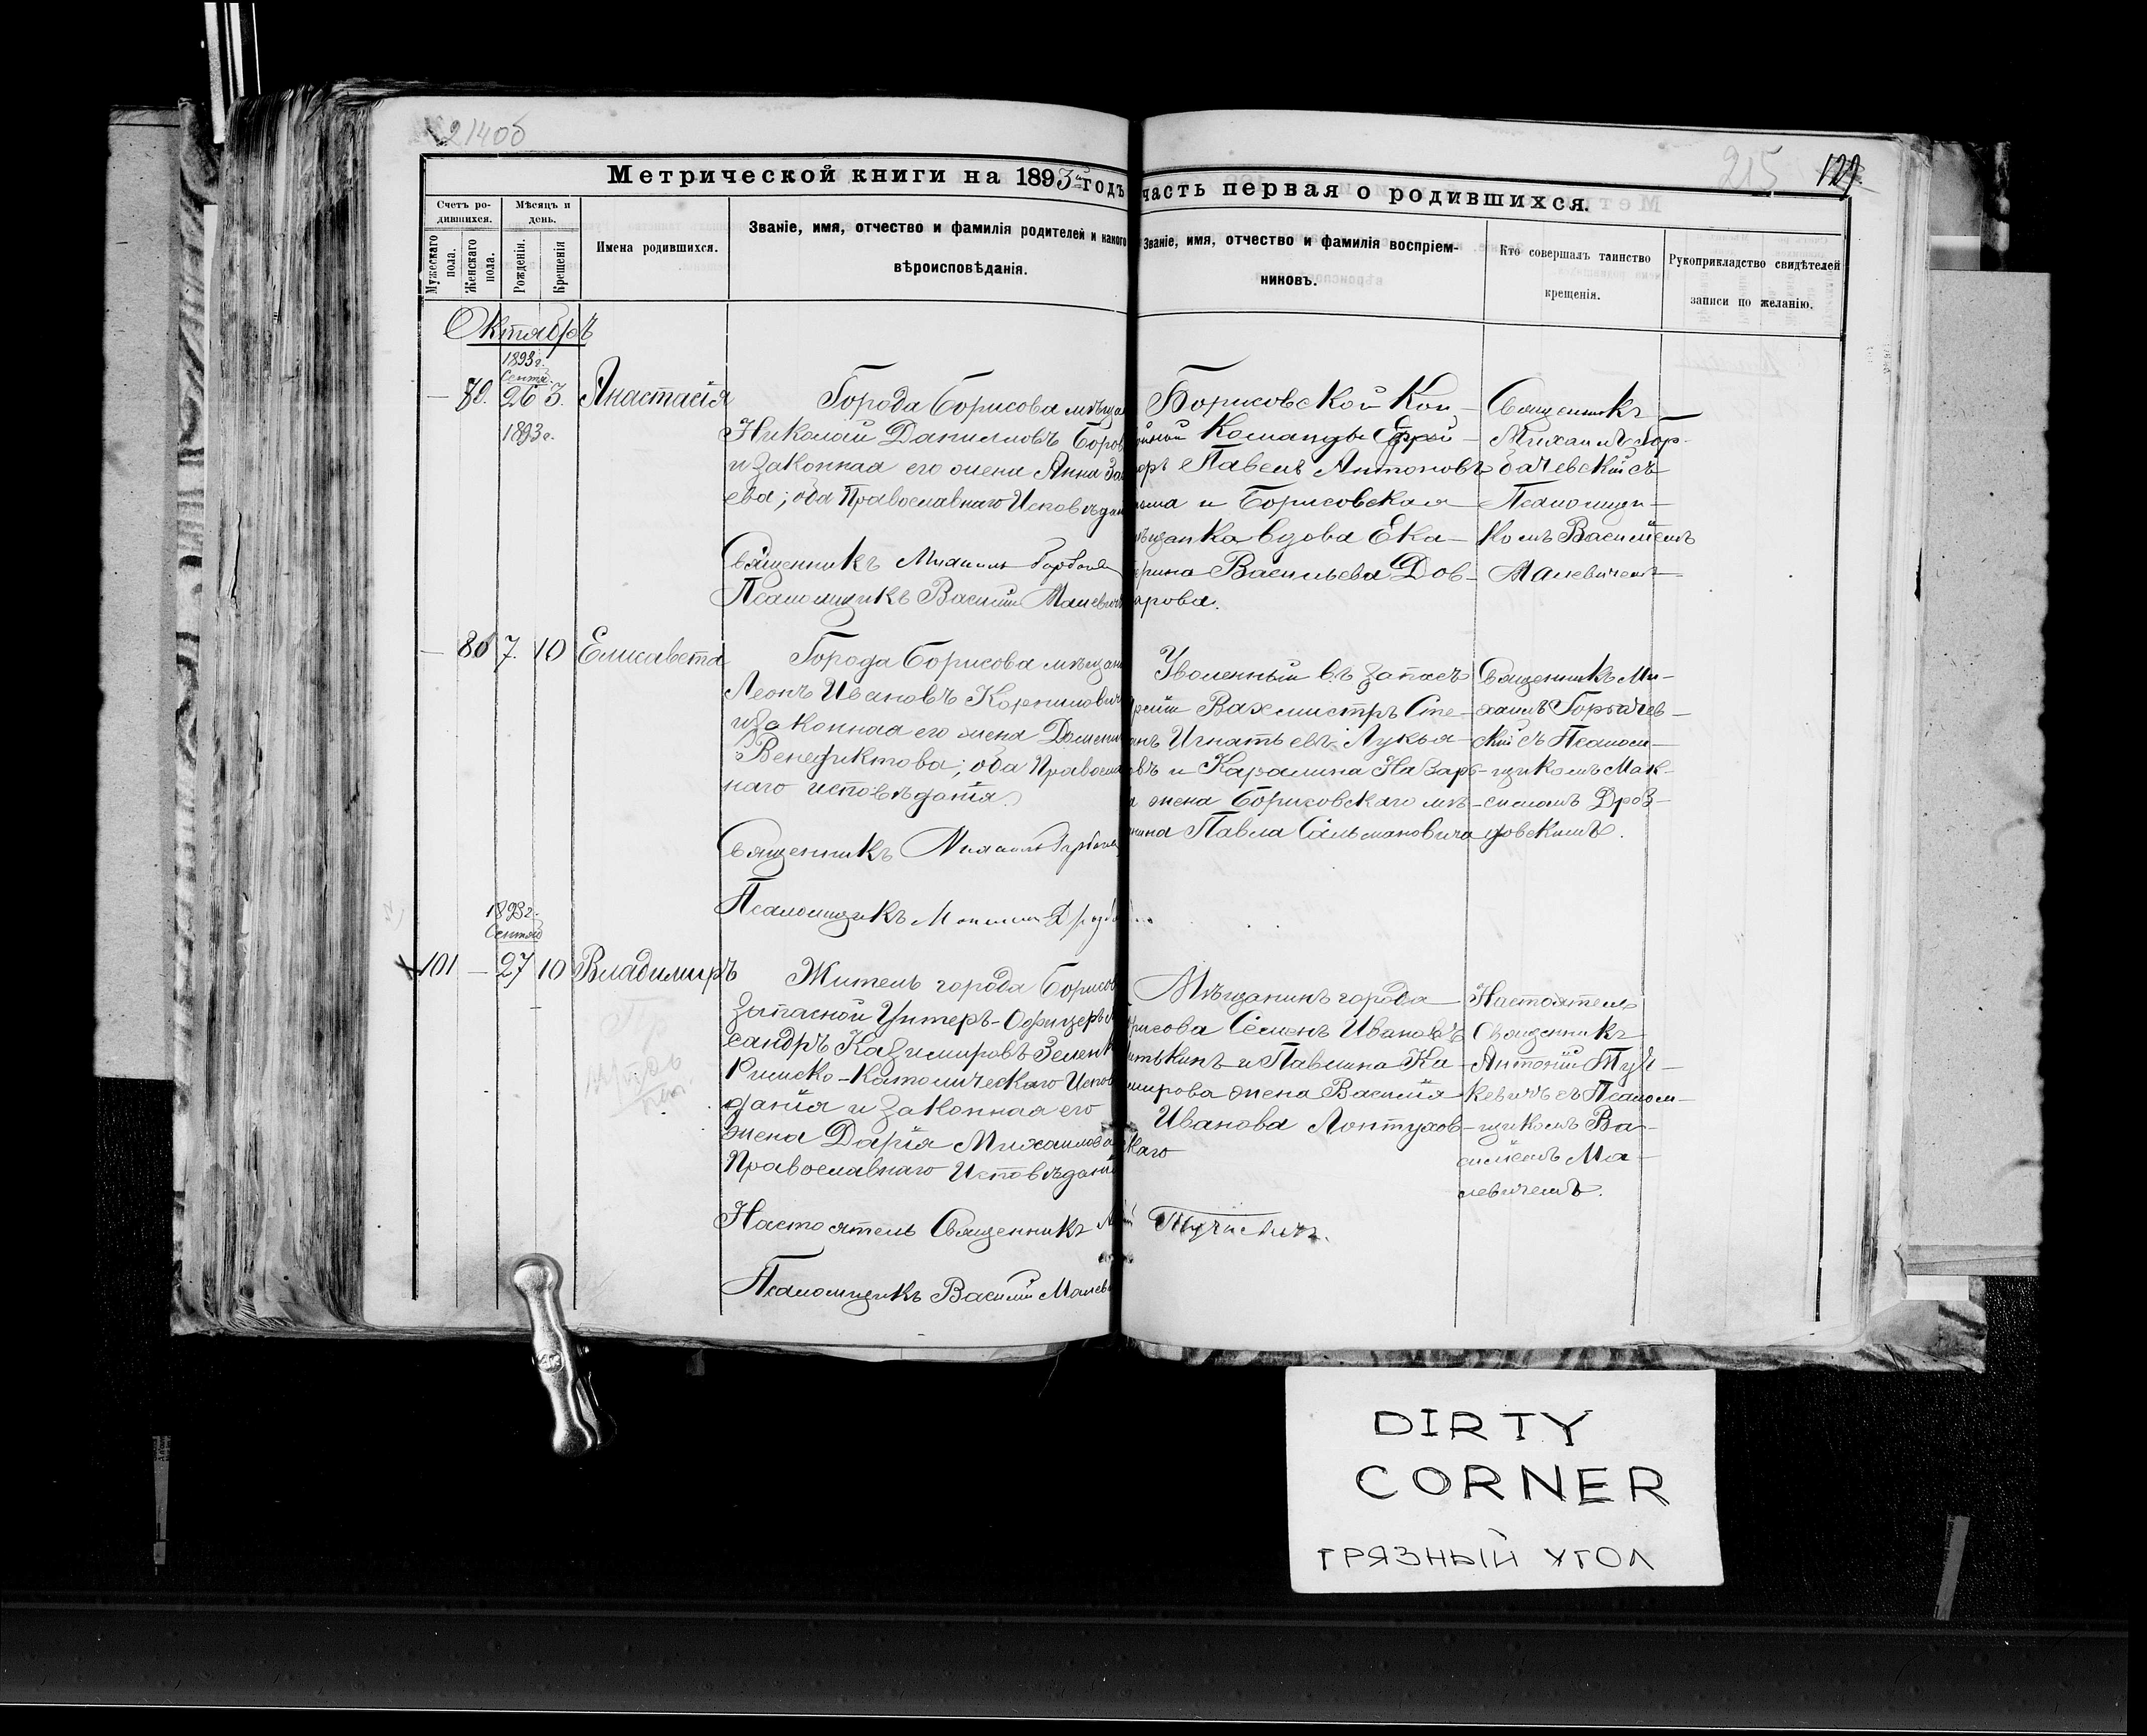 2140б
215
129
Метрической книги на 1893 годъ
часть первая о родившихся.
Счетъ родившихся.
Мужескаго пола.
Женскаго пола.
Мѣсяцъ и день.
Рожденія.
Крещенія
Имена родившихся.
Званіе, имя, отчество и фамилія родителей и какого
вѣроисповѣданія.
Званіе, имя, отчество и фамилія воспріем-
никовъ.
Кто совершалъ таинство
крещенія.
Рукоприкладство свидѣтелей
записи по желанію.
Октябрь
1893г.
Сентя.
26 3. Анастасія
1893г.
Города Борисова мѣща
Николай Данииловъ Боров
и законная его жена Анна За
ева; оба Православнаго Исповѣдан
Священникъ Михаилъ Горбаче
Псаломщикъ Василій Малевич
Борисовской Кон-
Команды
Павелъ Антоновъ
и Борисовская
щанка вдова Ека-
рина Васильева Дов-
арова.
Священникъ
Михаилъ Гор-
бачевскій съ
Псаломщи-
комъ Василіемъ
Малевичемъ
7. 10 Елисавета
Города Борисова мѣщан
Леонъ Ивановъ Корниловичъ
и законная его жена
Венефиктова; оба Правосла
наго исповѣданія.
Священникъ Михаилъ Горбаче
Псаломщикъ Максимъ Дроздов
Уволенный въ запасъ
Вахмистръ Сте-
анъ Игнатьевъ Лукья-
въ и Каралина Назарь-
а жена Борисовскаго мѣ-
нина Павла Сальмановича
Священникъ Ми-
хаилъ Горбачев-
скій съ Псалом-
щикомъ Мак-
симомъ Дроз-
довскимъ.
1893г.
Сентяб
101 — 27 10 Владимиръ
Житель города Борисов
запасной Унтеръ-Офицеръ
сандръ Казимировъ Зеленк
Римско-Католическаго Испов
данія и законная его
жена Дарія Михаилова
Православнаго Исповѣдані
Настоятель Священникъ
Псаломщикъ Василій Малеви
Мѣщанинъ города
рисова Семенъ Ивановъ
и Павлина Ка-
мирова жена Василія
Иванова Лонтухов-
каго
Настоятель
Священникъ
Антоній
съ Псалом-
щикомъ Ва-
силіемъ Ма-
левичемъ.
DIRTY
CORNER
ГРЯЗНЫЙ УГОЛ